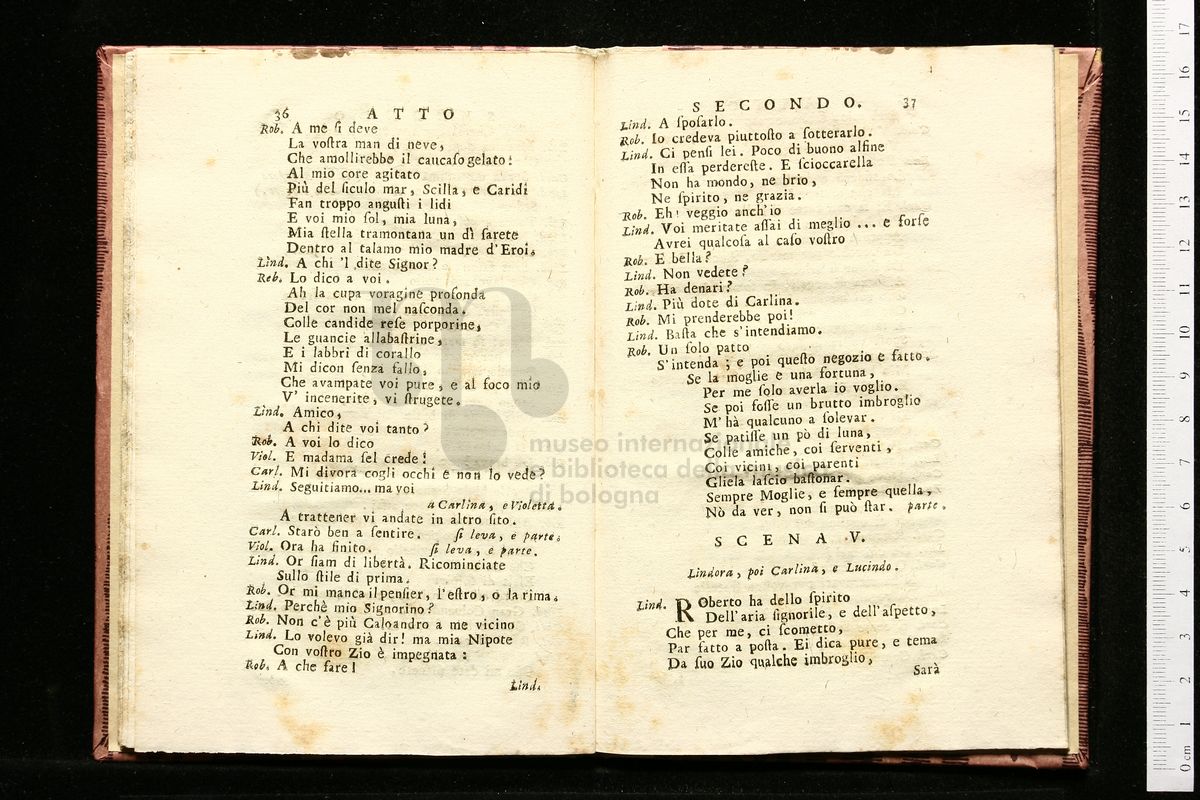 36 ATTO
Rob. A me ſi deve
La voſtra man di neve,
Che amollirebbe il caucaſo gelato!
Al mio core agitato
Più del ſiculo mar, Scilla, e Caridi
Fan troppo anguſti i lidi
E voi mio ſol, mia luna,
Mia ſtella tramontana un dì ſarete
Dentro al talamo mio madre d'Eroi.
Lind. A chi 'l dite Signor?
Rob. Lo dico a voi.
Ah la cupa voragine profonda
Del cor non mel naſconda.
Colle candide reſe porporine,
Le guancie allabaſtrine,
E i labbri di corallo
Mi dicon ſenza fallo,
Che avampate voi pure, e al foco mio
V' incenerite, vi ſtrugete.
Lind. Amico,
A chi dite voi tanto?
Rob. A voi lo dico
Viol. E madama ſel crede!
Carl. Mi divora cogli occhi e non lo vede?
Lind. Seguitiamo... ma voi
a Carlina, e Violetta.
A trattener vi andate in altro ſito.
Carl. Starò ben a ſentire. ſi leva, e parte.
Viol. Ora ha finito. ſi leva, e parte.
Lind. Or ſiam di libertà. Ricominciate
Sullo ſtile di prima.
Rob. Or mi manca il penſier, l'eſtro, o la rima.
Lind. Perchè mio Signorino?
Rob. Non c'è più Caloandro a me vicino
Lind. Lo volevo già dir! ma mia Nipote
Con voſtro Zio è impegnata:
Rob. A che fare!
Lind.
SECONDO. 37
Lind. A ſpoſarlo.
Rob. Io credeva piuttoſto a ſotterarlo.
Lind. Ci penſi lei. Poco di buono alfine
In eſſa perdereſte. E ſcioccarella
Non ha mondo, ne brio,
Ne ſpirito, ne grazia.
Rob. Eh! veggio anch'io
Lind. Voi meritate aſſai di meglio ... e forſe
Avrei qualcoſa al caſo voſtro
Rob. E bella?
Lind. Non vedete?
Rob. Ha denari?
Lind. Più dote di Carlina.
Rob. Mi prenderebbe poi!
Lind. Baſta che s'intendiamo.
Rob. Un ſolo patto
S'intenda; e poi queſto negozio e fatto.
Se la moglie e una fortuna,
Per me ſolo averla io voglio.
Se poi foſſe un brutto imbroglio
M'hà qualcuno a ſolevar.
Se patiſſe un pò di luna,
Colle amiche, coi ſerventi,
Coi vicini, coi parenti
Gliela laſcio baſtonar.
Sempre Moglie, e ſempre quella,
Nò da ver, non ſi può ſtar. parte.
SCENA V.
Lindora, poi Carlina, e Lucindo.
Lind. ROberto ha dello ſpirito
Dell'aria ſignorile, e dell'aſpetto,
Che per me, ci ſcometto,
Par fatto a poſta. Ei dica pure, e tema
Da ſuo Zio qualche imbroglio,
Sarà
museo internazionale
e biblioteca de
di bologna
0 cm 1 2 3 4 5 6 7 8 9 10 11 12 13 14 15 16 17